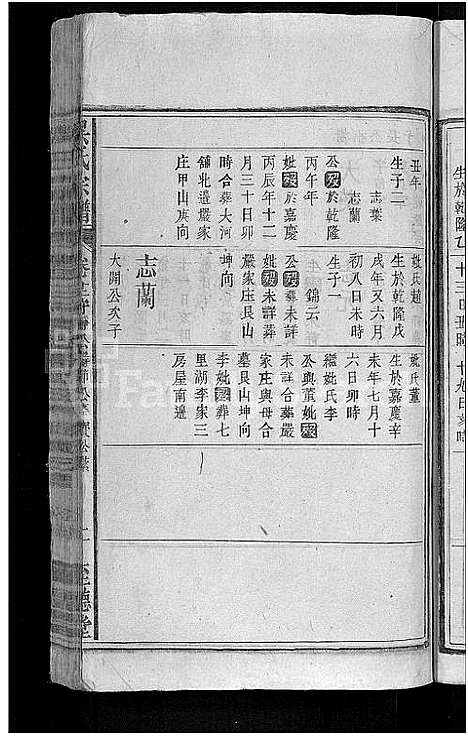 生於乾隆乙
十三日丑時
丑年
生子二
志葉
志蘭
公歿於乾隆
丙午年
妣歿於嘉慶
丙辰年十二
月三十日卯
時合葬大河
舖北邊嚴家
庄甲山庚向
妣氏趙
生於乾隆戊
戌年又六月
初八日未時
生子一
錦云
公歿葬未詳
妣歿未詳葬
嚴家庄艮山
坤向
志蘭
大開公次子
妣氏董
生於嘉慶辛
未年七月十
六日卯時
繼妣氏李
公與董妣歿
未詳合葬嚴
家庄與母合
墓艮山坤向
李妣歿葬七
里湖李家三
房屋南邊
吳氏宗譜
至德堂